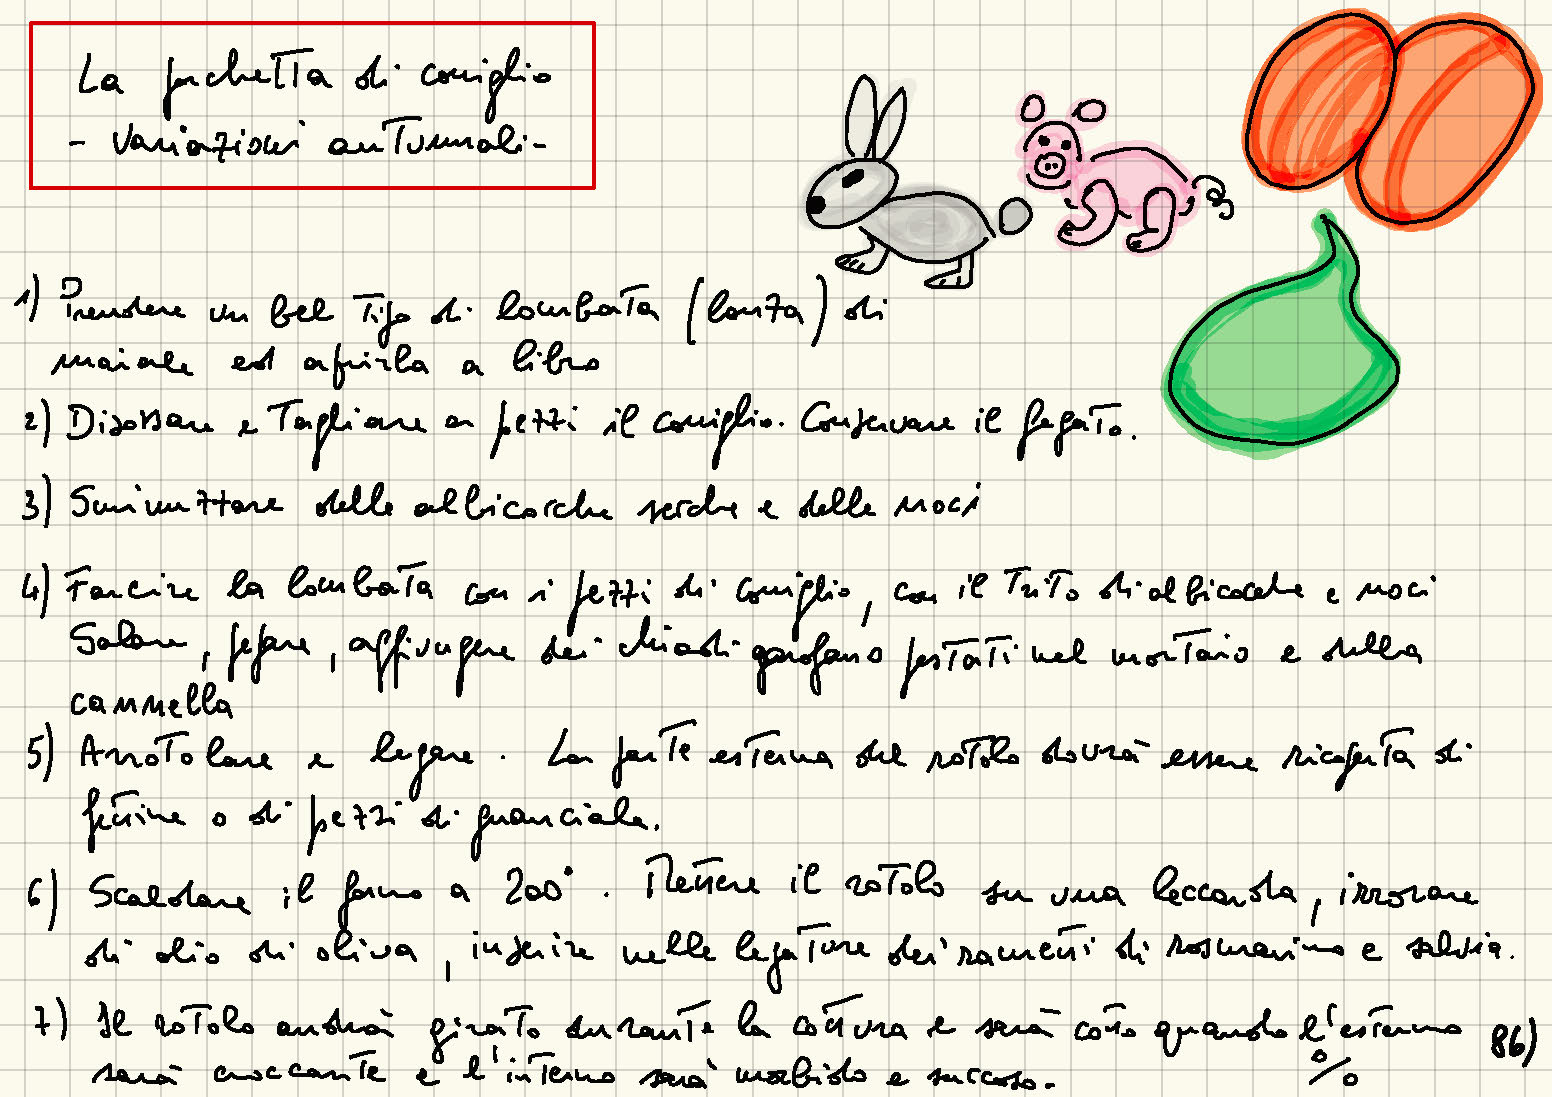 La porchetta di coniglio
- variazioni autunnali -
1) Prendere un bel tipo di lombata (lonza) di
maiale ed aprirla a libro
2) Disossare e tagliare a pezzi il coniglio. Conservare il fegato.
3) Sminuzzare delle albicocche secche e delle noci
4) Farcire la lombata con i pezzi di coniglio, con il trito di albicocche e noci
Salare, pepare, aggiungere dei chiodi garofano pestati nel mortaio e della
cannella
5) Arrotolare e legare. La parte esterna del rotolo dovrà essere ricoperta di
fettine o di pezzi di guanciale.
6) Scaldare il forno a 200°. Mettere il rotolo su una leccarda, irrorare
di olio di oliva, inserire nelle legature dei rametti di rosmarino e salvia.
7) Il rotolo andrà girato durante la cottura e sarà cotto quando l'esterno
sarà croccante e l'interno sarà morbido e succoso.
%
86)